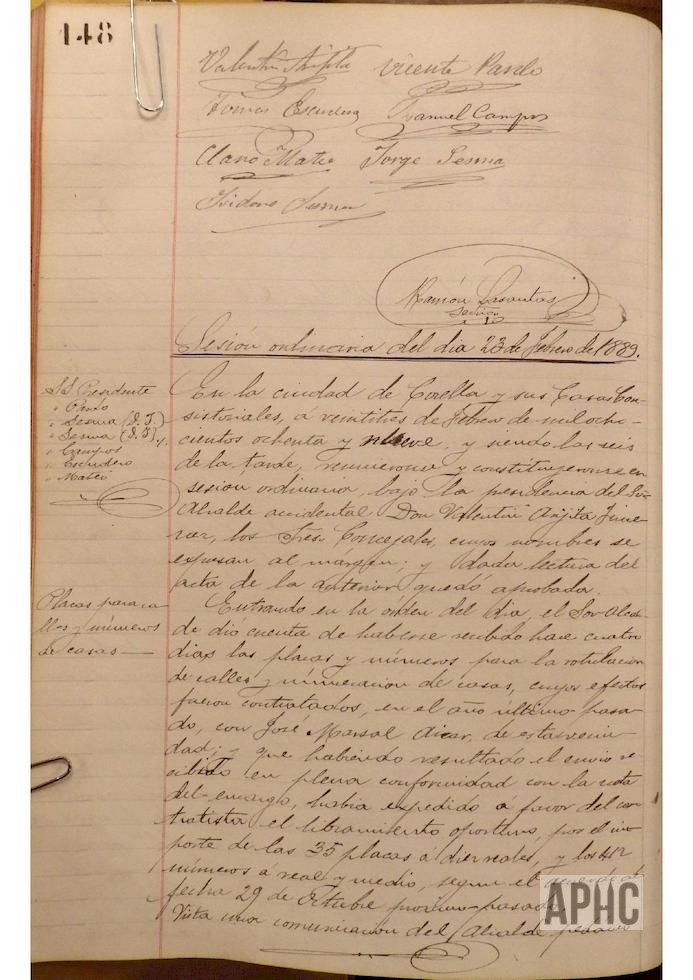 148
Valentin Arijita Vicente Pardo
Tomas Escudero Manuel Campos
Claro Mateo Jorge Sesma
Isidoro Sesma
Ramón Lasantas
Srio
Sesión ordinaria del dia 23 de Febrero de 1889.
SS. Presidente
" Pardo
" Sesma (D. J.)
" Sesma (D. I.)
" Campos
" Escudero
" Mateo
En la ciudad de Corella y sus Casas Con-
sistoriales, á veintitres de Febrero de mil ocho-
cientos ochenta y nueve, y siendo las seis
de la tarde, reunieronse y constituyeronse en
sesion ordinaria, bajo la presidencia del Sor
Alcalde accidental Don Valentin Arijita Jime-
nez, los Sres. Concejales, cuyos nombres se
expresan al márgen; y dada lectura del
acta de la anterior quedó aprobada.
Placas para ca-
lles y números
de casas —
Entrando en la órden del dia, el Sor Alcal-
de dió cuenta de haberse recibido hace cuatro
dias las placas y números para la rotulacion
de calles y numeracion de casas, cuyos efectos
fueron contratados, en el año último pasa-
do, con José Marsal Aicar, de esta vecin-
dad; y que habiendo resultado el envio re-
cibido en plena conformidad con la nota
del encargo, habia expedido a favor del con-
tratista el libramiento oportuno, por el im-
porte de las 35 placas á diez reales, y los 412
números a real y medio, segun el acuerdo de
fecha 29 de Octubre proximo pasado
Vista una comunicacion del Alcalde
APHC